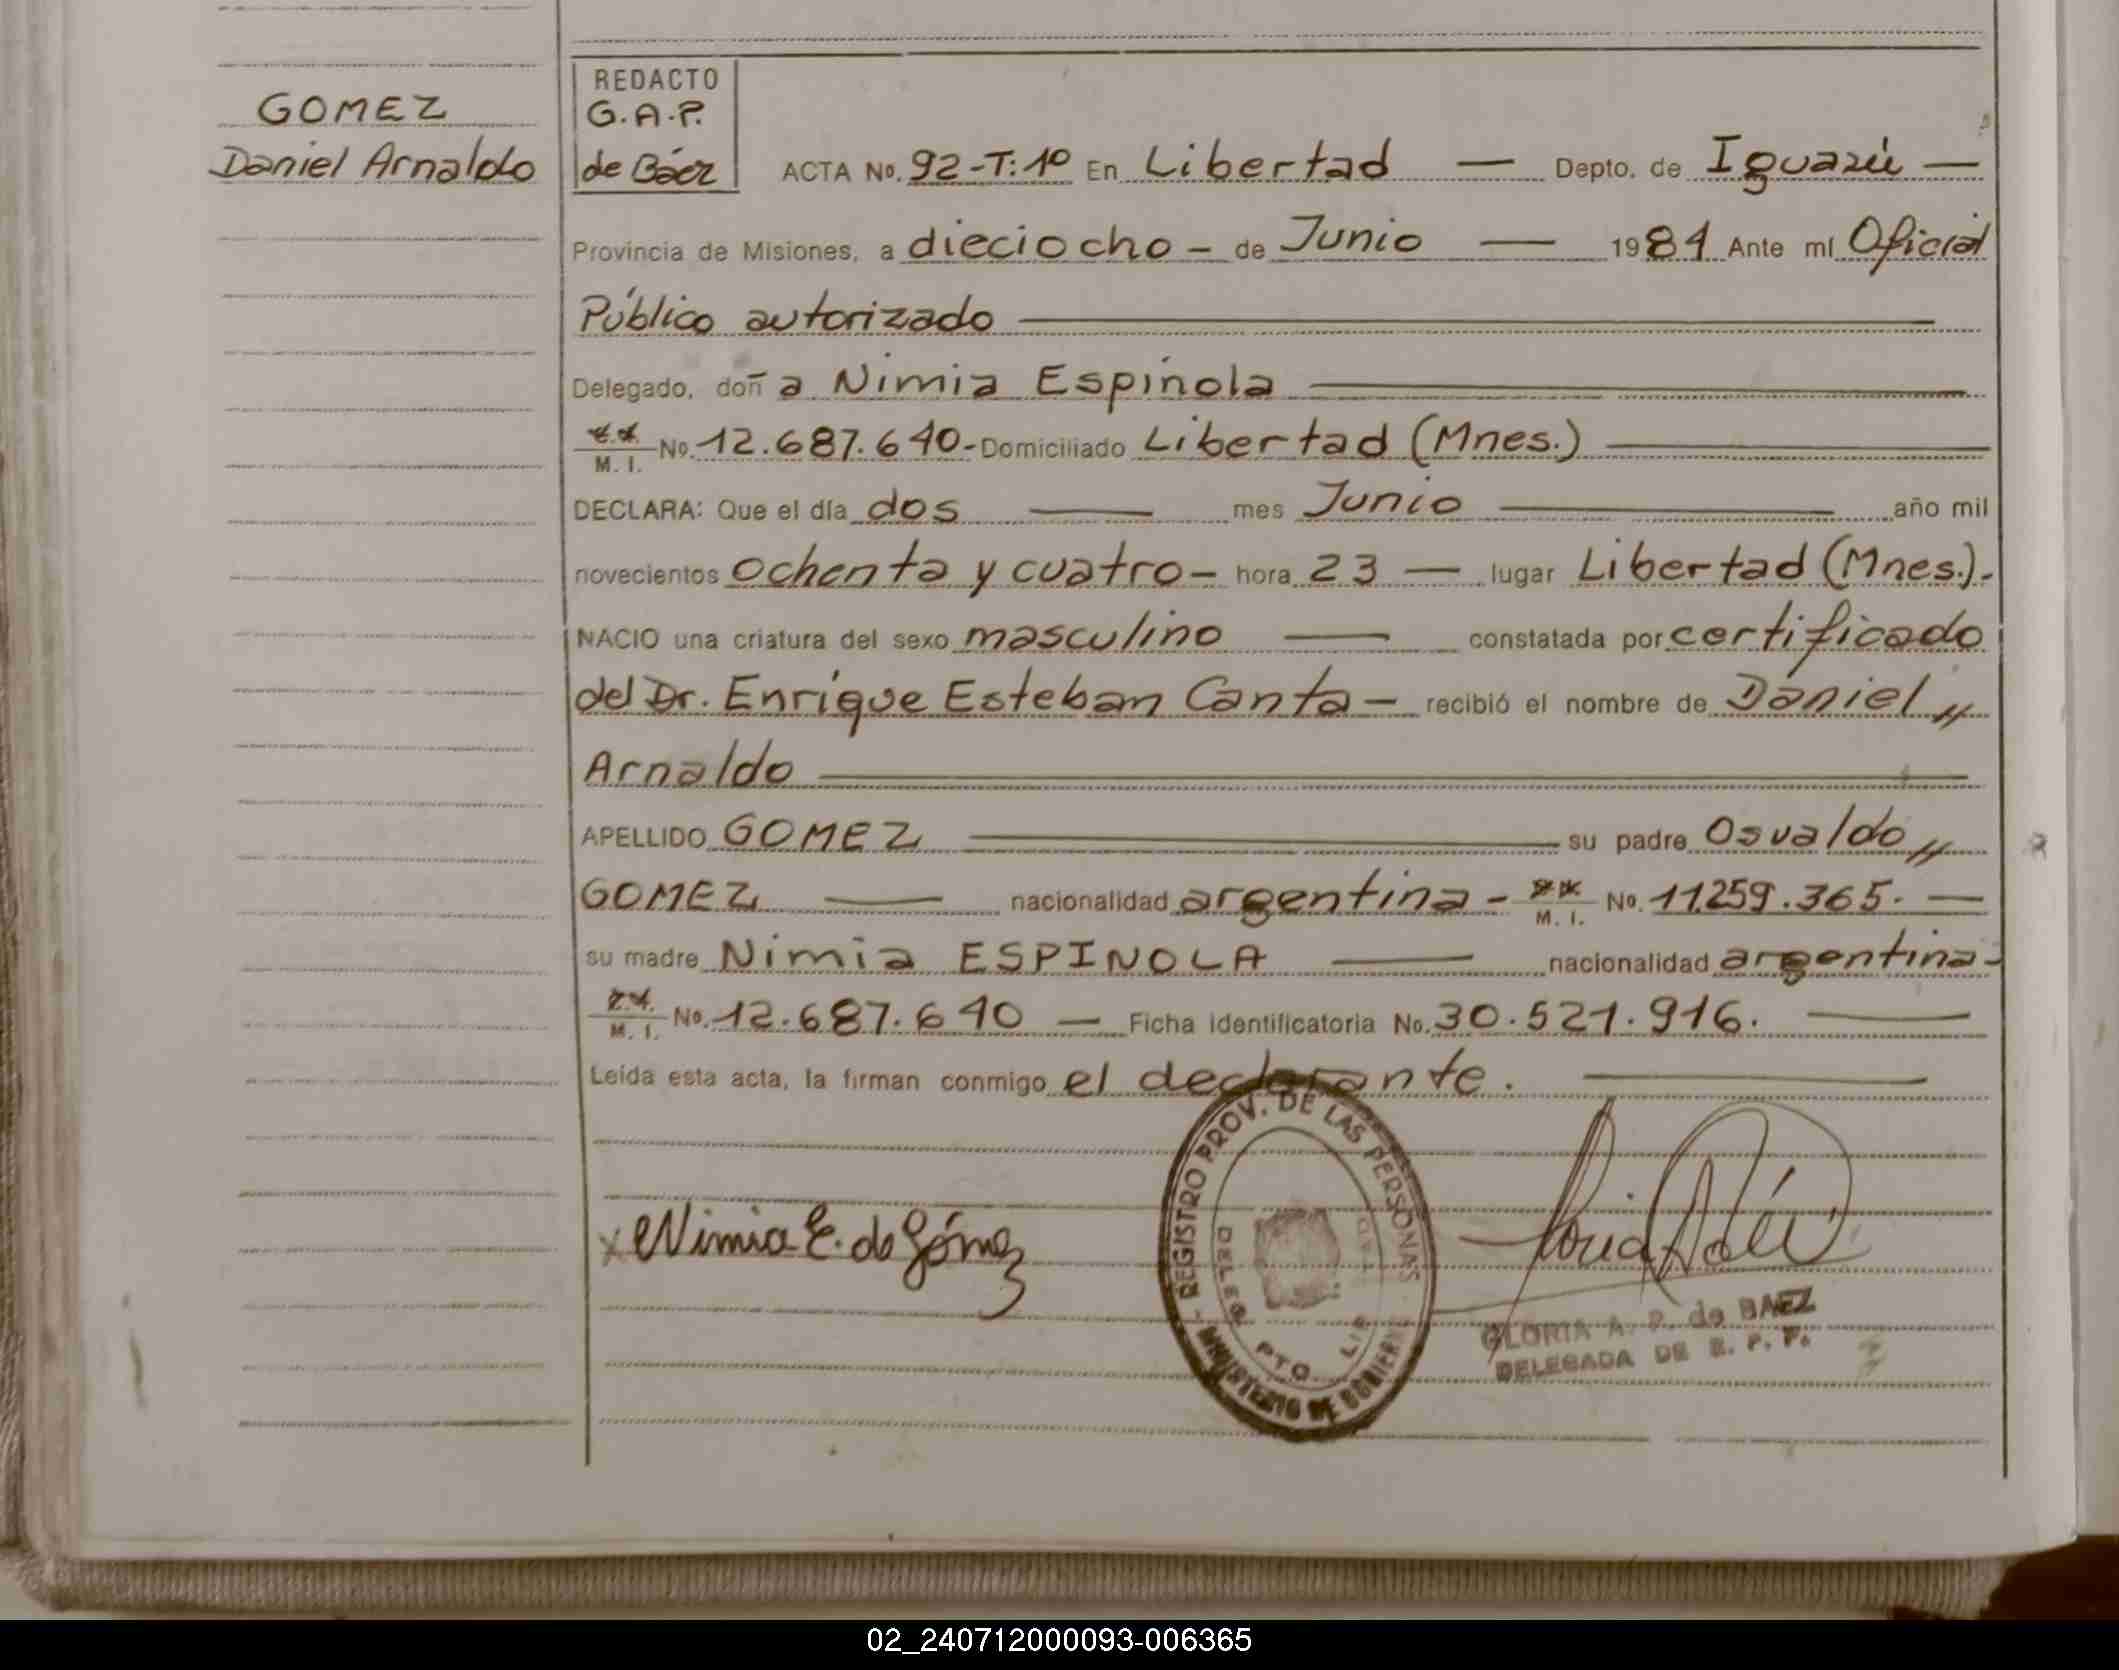 GOMEZ
Daniel Arnaldo
REDACTO
G.A.P.
de Báez
ACTA No. 92-T:1º En Libertad — Depto. de Iguazú —
Provincia de Misiones, a dieciocho - de Junio — 1984 Ante mI Oficial
Público autorizado
Delegado, doña Nimia Espínola
M. I. No. 12.687.640- Domiciliado Libertad (Mnes.)
DECLARA: Que el día dos — mes Junio — año mil
novecientos ochenta y cuatro - hora 23 — lugar Libertad (Mnes.).-
NACIO una criatura del sexo masculino — constatada por certificado
del Dr. Enrique Esteban Canta - recibió el nombre de Daniel //
Arnaldo
APELLIDO GOMEZ — su padre Osvaldo //
GOMEZ — nacionalidad argentina - M. I. No. 11.259.365. —
su madre Nimia ESPINOLA — nacionalidad argentina-
M. I. No. 12.687.640 — Ficha identificatoria No. 30.521.916. —
Leída esta acta, la firman conmigo el declarante. —
x Nimia E. de Gómez
REGISTRO PROV. DE LAS PERSONAS
MINISTERIO DE GOBIERNO
DELEG
PTO LIB
GLORIA A. P. de BAEZ
DELEGADA DE R. P. P.
02_240712000093-006365